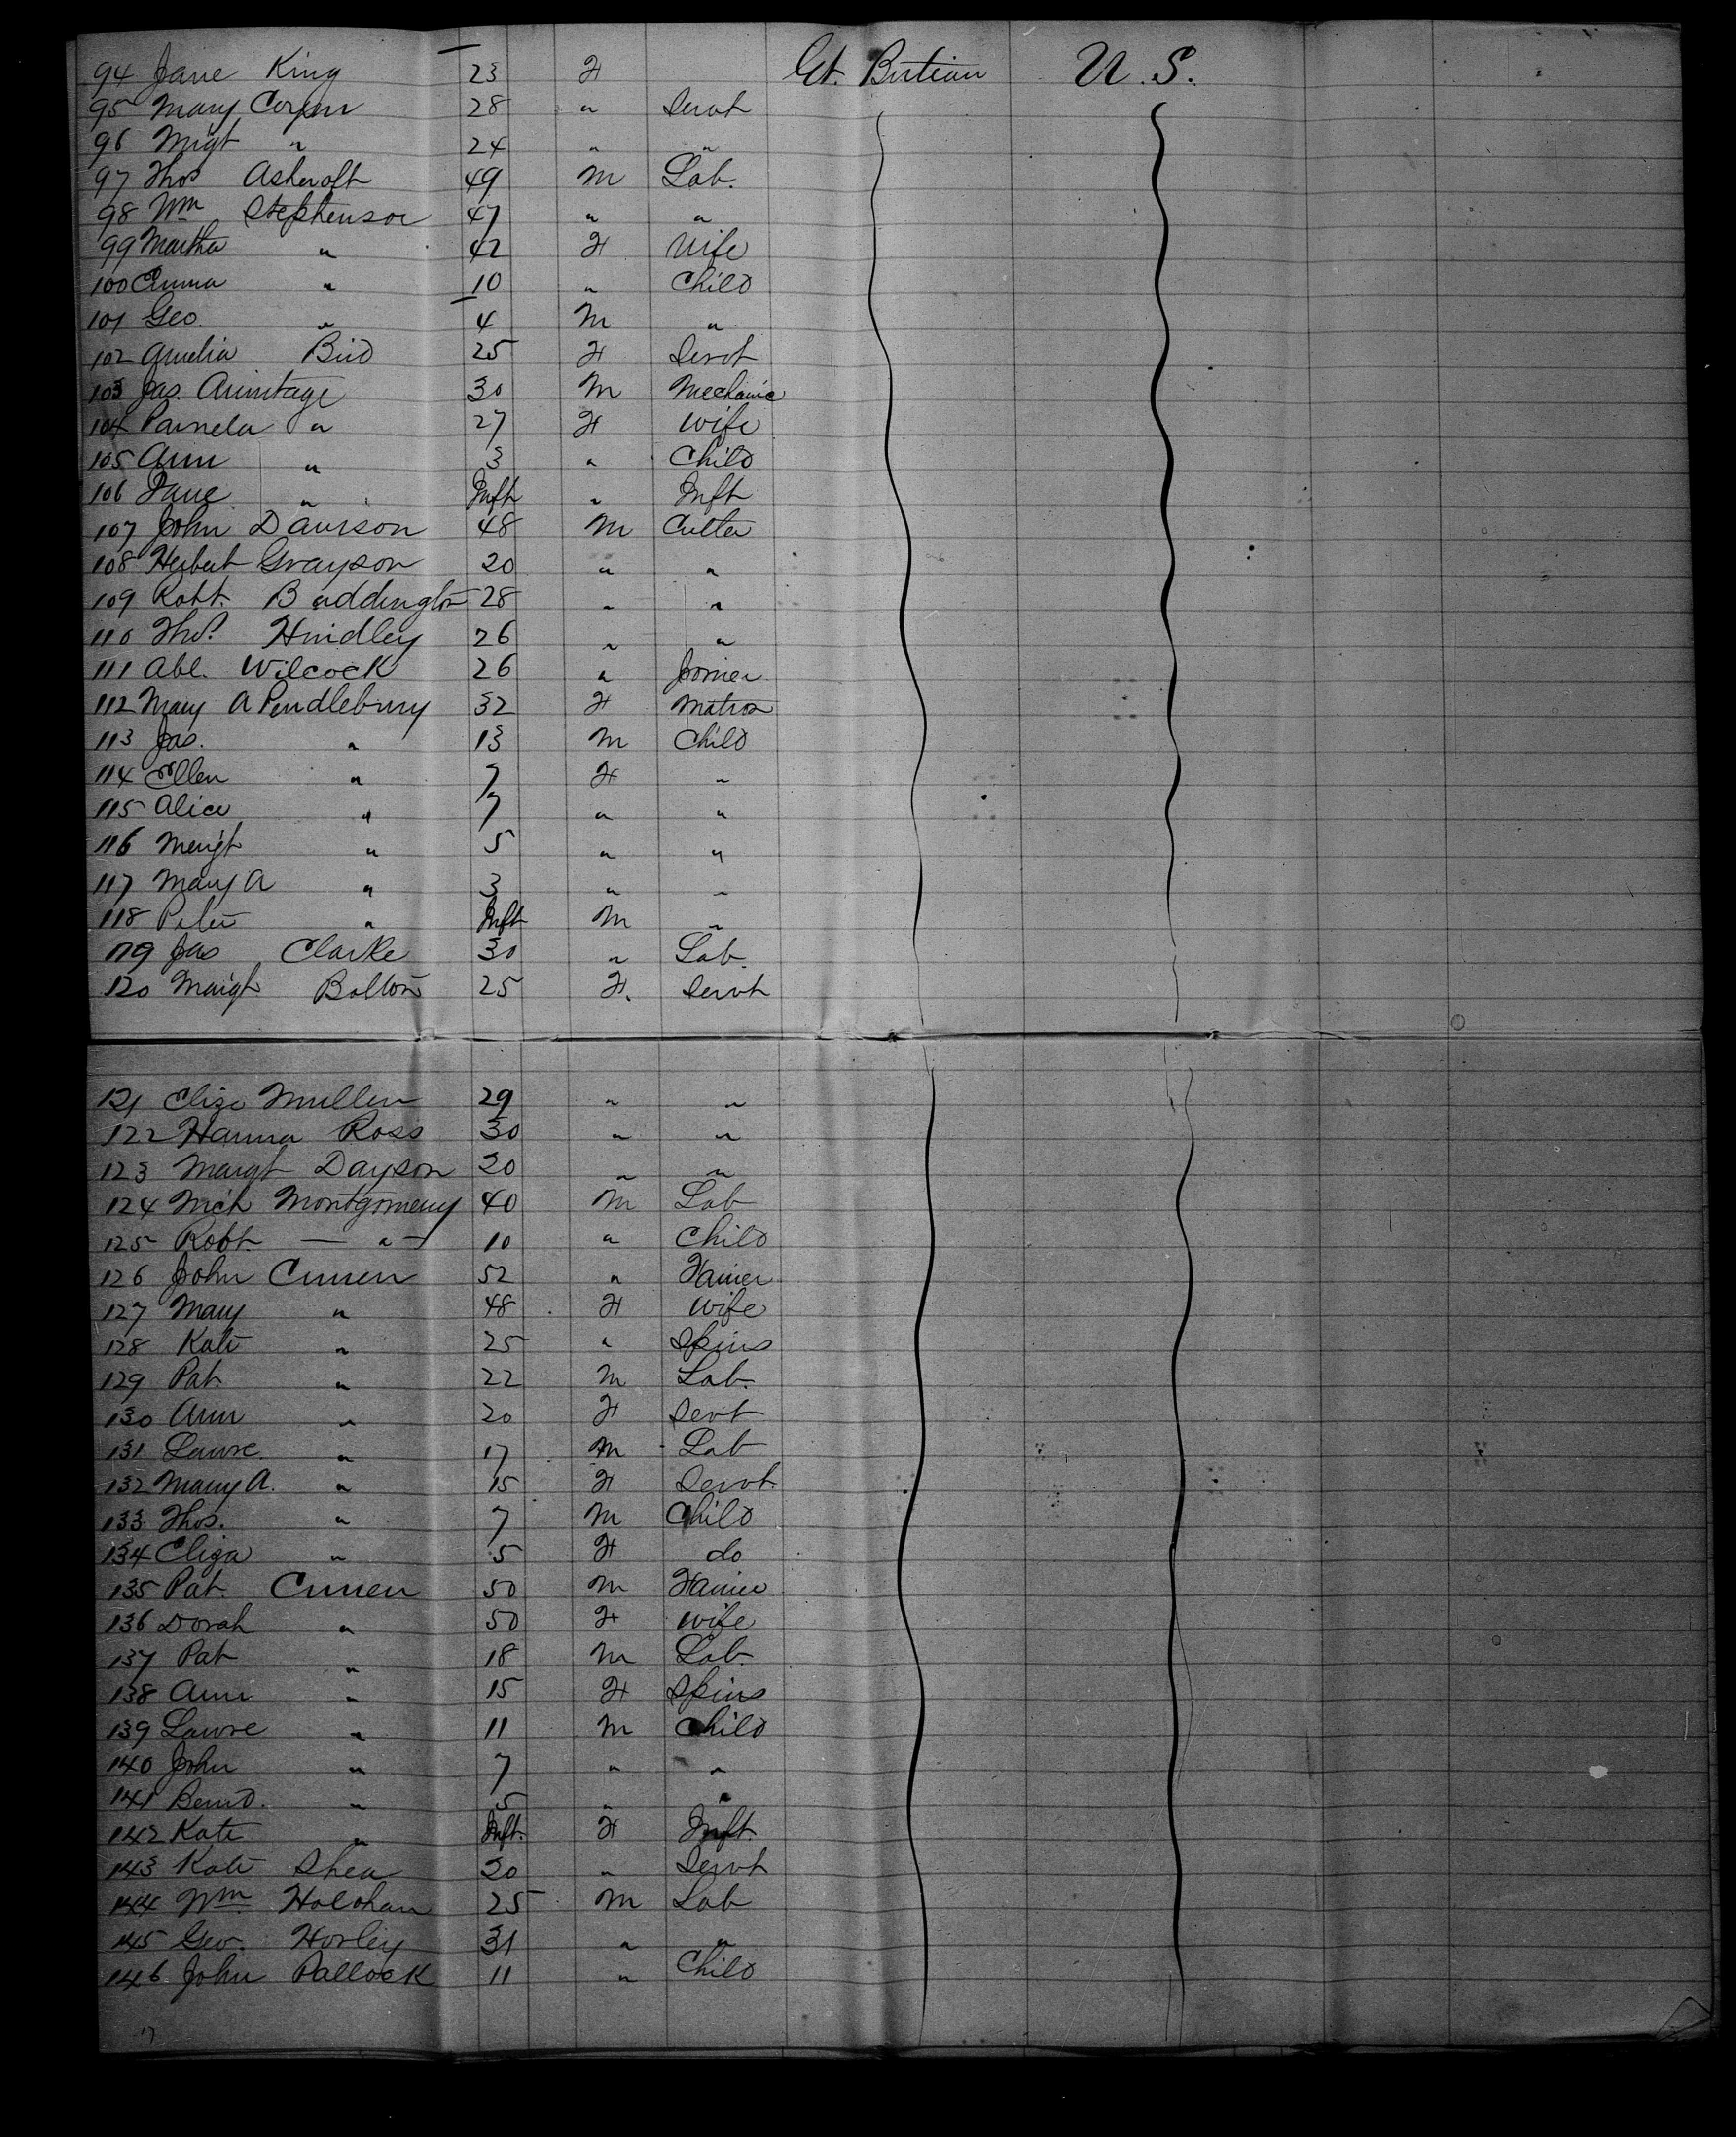 94 Jane King 23 F Gt. Britian U.S.
95 Mary 28 " Servt
96 Mrgt " 24 " "
97 Thos Ashcroft 49 M Lab.
98 Wm Stephenson 47 " "
99 Martha " 42 F Wife
100 Emma " 10 " Child
101 Geo. " 4 M "
102 Amelia Bird 25 F Servt
103 Jas. Armitage 30 M Mechanic
104 Pamela " 27 F Wife
105 Ann " 3 " Child
106 Jane " Inft " Inft
107 John Dawson 48 M Cutler
108 Herbert Grayson 20 " "
109 Robt. Buddington 28 " "
110 Thos. Hindley 26 " "
111 Abl. Wilcock 26 " Joiner
112 Mary A Pendlebury 32 F Matron
113 Jas. " 13 M Child
114 Ellen " 7 F "
115 Alice " 7 " "
116 Margt " 5 " "
117 Mary A " 3 " "
118 Peter " Inft M "
119 Jas Clarke 30 " Lab.
120 Margt Bolton 25 F. Servt
121 Eliza Mullen 29 " "
122 Hanna Ross 30 " "
123 Margt Dayson 20 " "
124 Mich Montgomery 40 M Lab
125 Robt. — " — 10 " Child
126 John Curren 52 " Farmer
127 Mary " 48 F Wife
128 Kate " 25 " Spins
129 Pat. " 22 M Lab.
130 Ann " 20 F Servt
131 Lawre. " 17 M Lab
132 Mary A. " 15 F Servt.
133 Thos. " 7 M Child
134 Eliza " 5 F do
135 Pat. Curren 50 M Farmer
136 Dorah " 50 F Wife
137 Pat " 18 M Lab.
138 Ann " 15 F Spins
139 Lawre " 11 M Child
140 John " 7 " "
141 Bernd. " 5 " "
142 Kate " Inft. F Inft.
143 Kate Shea 20 " Servt
144 Wm Holohan 25 M Lab
145 Geo. Horley 31 " "
146 John Pallock 11 " Child